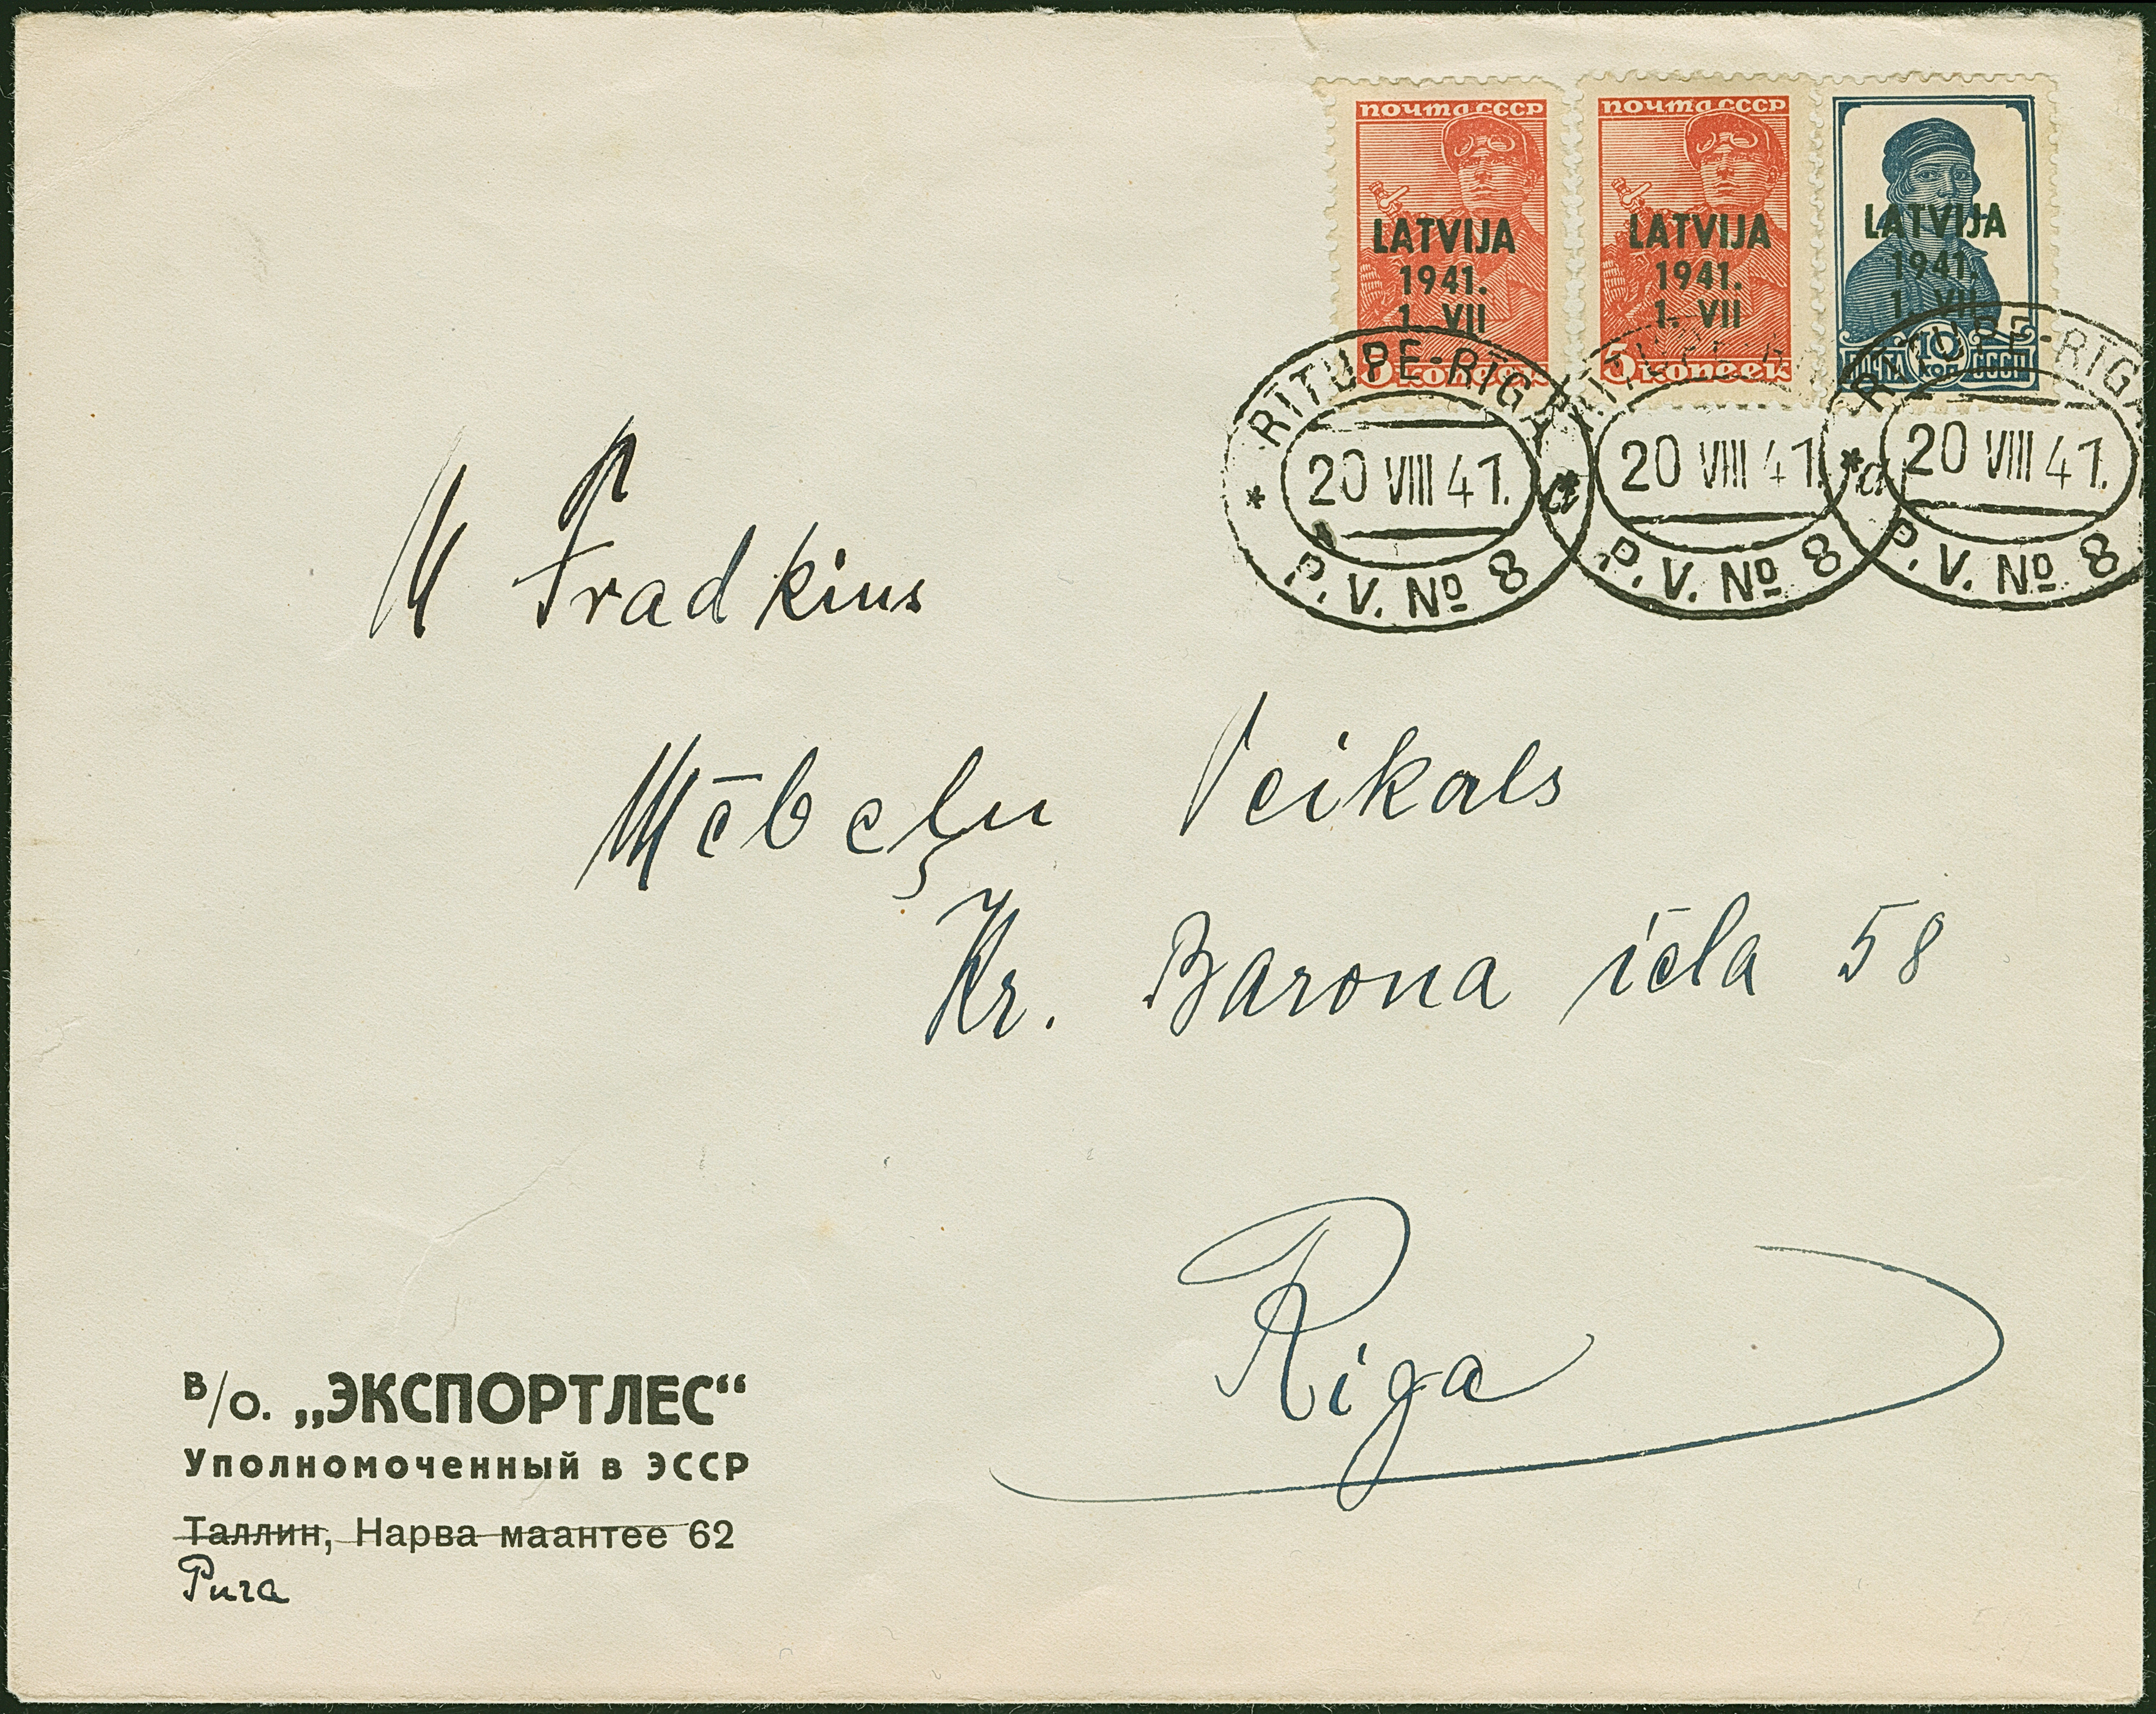 почта СССР
LATVIJA
1941.
1. VII
5 копеек
почта СССР
LATVIJA
1941.
1. VII
5 копеек
LATVIJA
1941.
1. VII
ПОЧТА 10 КОП СССР
RĪTUPE-RĪGA
20 VIII 41.
a
P. V. № 8
20 VIII 41.
a
P. V. № 8
RĪTUPE-RĪGA
20 VIII 41.
P. V. № 8
M Fradkins
Mēbeļu Veikals
Kr. Barona iela 58
Riga
В/О. „ЭКСПОРТЛЕС“
Уполномоченный в ЭССР
Таллин, Нарва маантее 62
Рига